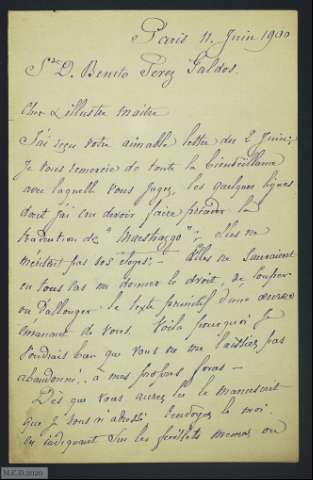 Paris 11. Juin 1900
Sr. D. Benito Perez Galdos.
Cher & illustre maitre
J'ai reçu votre aimable lettre du 2 Juin;
Je vous remercie de toute la bienveillance
avec laquelle vous jugez les quelques lignes
dont j'ai cru devoir faire précéder la
traduction de "Maestrazgo"; elles ne
méritent pas vos éloges; - Elles ne sauraient
en tous cas me donner le droit, de couper
ou d'allonger le texte primitif d'une œuvre
émanant de vous. Voilà pourquoi je
voudrais bien que vous ne me laissiez pas
abandonné, à mes propres forces -
Dès que vous aurez lu le manuscrit
que je vous ai adressé renvoyez le moi,
en indiquant sur les feuillets mêmes ou